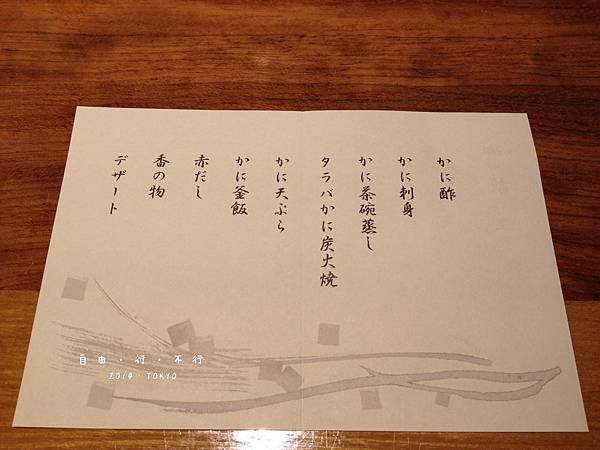 かに酢
かに刺身
かに茶碗蒸し
タラバかに炭火焼
かに天ぷら
かに釜飯
赤だし
香の物
デザート
自由・行・不行
2014・TOKYO